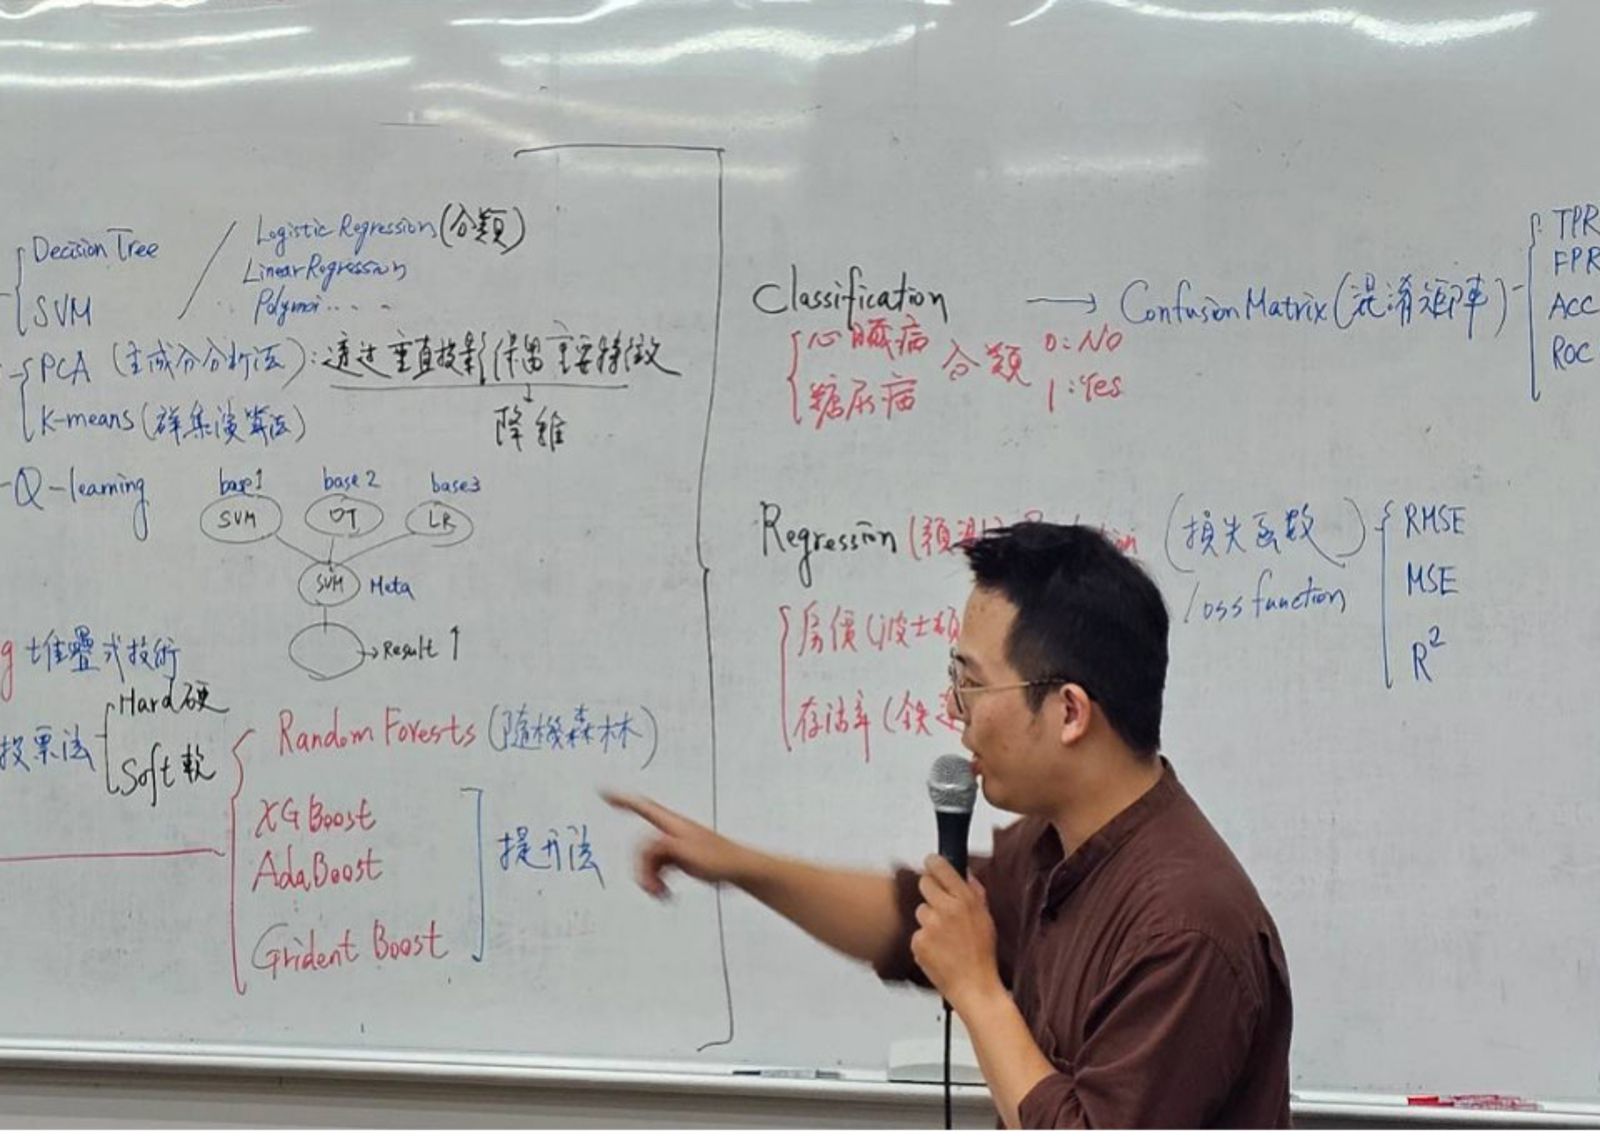 Decision Tree
SVM
Logistic Regression (分類)
Linear Regression
PCA (主成分分析法): 透过垂直投影保留主要特徵
降維
K-means (群集演算法)
Q-learning
base1 base2 base3
SVM DT LR
SVM Meta
→ Result ↑
g 堆疊式技術
投票法
Hard 硬
Soft 軟
Random Forests (隨機森林)
XGBoost
AdaBoost
Grident Boost
提升法
Classification → Confusion Matrix (混淆矩陣)
TPR
FPR
ACC
ROC
心臟病
糖尿病
分類
0: No
1: Yes
Regression (預測
(損失函數)
loss function
RMSE
MSE
R²
房價 (波士頓
存活率 (鐵達